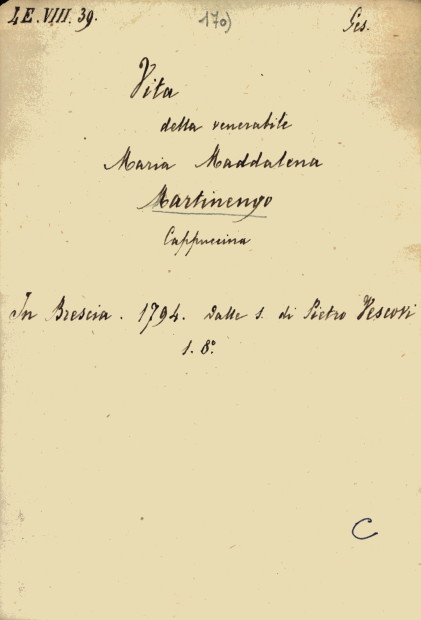 I.E.VIII.39. 170) Ges.
Vita
della venerabile
Maria Maddalena
Martinengo
Cappuccina
In Brescia. 1794. dalle s. di Pietro Vescovi
1. 8º.
C